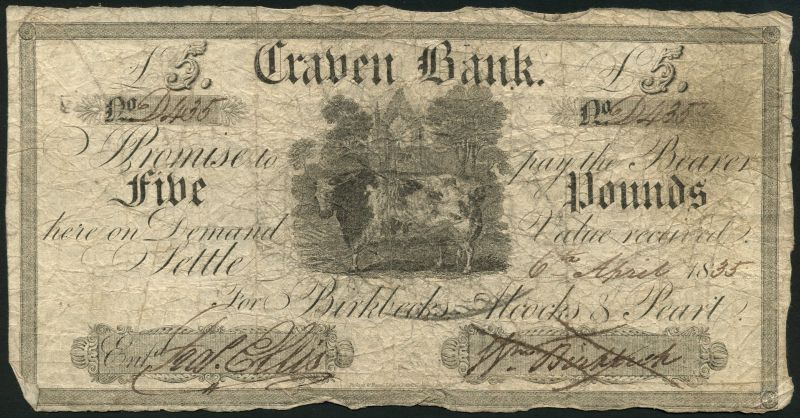 £5. Craven Bank. £5.
No. D435 No. D435
I Promise to pay the Bearer
Five Pounds
here on Demand Value received.
Settle 6th April 1835
For Birkbecks Alcocks & Peart.
Entd. Jas. Ellis Wm Birkbeck